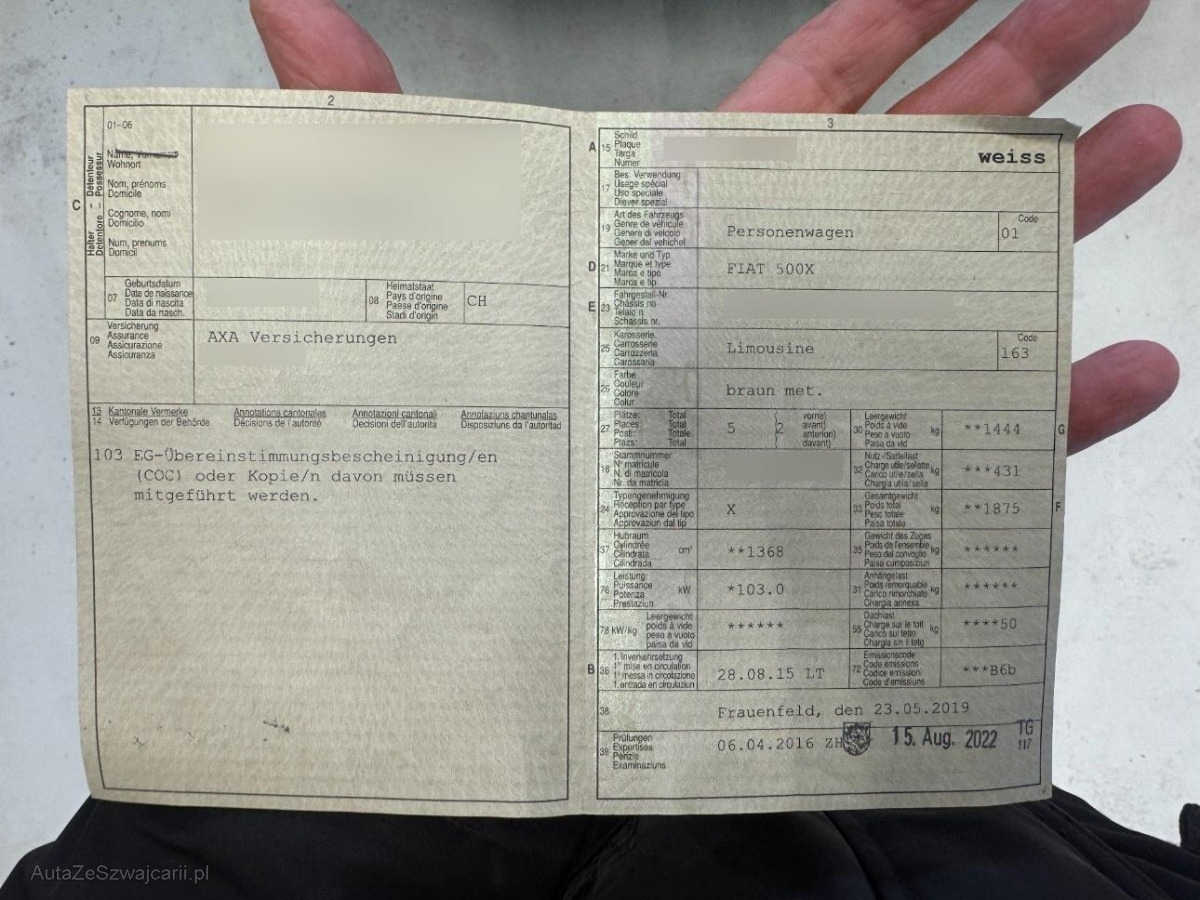 2
01-06
Name, Vornamen
Wohnort
Nom, prénoms
Domicile
Cognome, nomi
Domicilio
Num, prenums
Domicil
C
Halter – Détenteur
Detentore – Possessur
07
Geburtsdatum
Date de naissance
Data di nascita
Data da nasch.
08
Heimatstaat
Pays d'origine
Paese d'origine
Stadi d'origin
CH
09
Versicherung
Assurance
Assicurazione
Assicuranza
AXA Versicherungen
13 Kantonale Vermerke Annotations cantonales Annotazioni cantonali Annotaziuns chantunalas
14 Verfügungen der Behörde Décisions de l'autorité Decisioni dell'autorità Disposiziuns da l'autoritad
103 EG-Übereinstimmungsbescheinigung/en
(COC) oder Kopie/n davon müssen
mitgeführt werden.
3
A 15
Schild
Plaque
Targa
Numer
weiss
17
Bes. Verwendung
Usage spécial
Uso speciale
Diever spezial
19
Art des Fahrzeugs
Genre de véhicule
Genere di veicolo
Gener dal vehichel
Personenwagen
Code
01
D 21
Marke und Typ
Marque et type
Marca e tipo
Marca e tip
FIAT 500X
E 23
Fahrgestell-Nr.
Châssis no
Telaio n.
Schassis nr.
25
Karosserie
Carrosserie
Carrozzeria
Carossaria
Limousine
Code
163
26
Farbe
Couleur
Colore
Colur
braun met.
27
Plätze: Total
Places: Total
Posti: Totale
Plazs: Total
5 ( 2
vorne)
avant)
anteriori)
davant)
30
Leergewicht
Poids à vide
Peso a vuoto
Paisa da vid
kg
**1444
G
18
Stammnummer
N° matricule
N. di matricola
Nr. da matricla
32
Nutz-/Sattellast
Charge utile/sellette
Carico utile/sella
Chargia utila/sella
kg
***431
24
Typengenehmigung
Réception par type
Approvazione del tipo
Approvaziun dal tip
X
33
Gesamtgewicht
Poids total
Peso totale
Paisa totala
kg
**1875
F
37
Hubraum
Cylindrée
Cilindrata
Cilindrada
cm³
**1368
35
Gewicht des Zuges
Poids de l'ensemble
Peso del convoglio
Paisa cumposiziun
kg
******
76
Leistung
Puissance
Potenza
Prestaziun
kW
*103.0
31
Anhängelast
Poids remorquable
Carico rimorchiato
Chargia annexa
kg
******
78 kW/kg
Leergewicht
poids à vide
peso a vuoto
paisa da vid
******
55
Dachlast
Charge sur le toit
Carico sul tetto
Chargia sin il tetg
kg
****50
B 36
1. Inverkehrsetzung
1re mise en circulation
1a messa in circolazione
1. entrada en circulaziun
28.08.15 LT
72
Emissionscode
Code émissions
Codice emissioni
Code d'emissiuns
***B6b
38
Frauenfeld, den 23.05.2019
39
Prüfungen
Expertises
Perizie
Examinaziuns
06.04.2016 ZH
15. Aug. 2022
TG
117
AutaZeSzwajcarii.pl